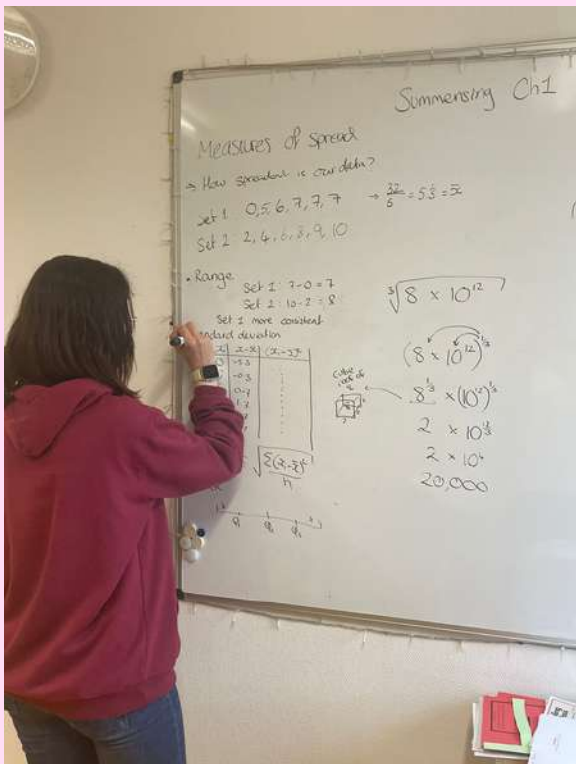 Summensing Ch1
Measures of spread
→ How spreadout is our data?
Set 1: 0,5,6,7,7,7 → 32/6 = 5.3 = x̄
Set 2: 2,4,6,8,9,10
• Range
Set 1: 7-0=7
Set 2: 10-2=8
Set 1 more consistent
ndard deviation
x | x-x̄ | (x-x̄)²
-5.3
-0.3
0.7
1.7
√Σ(x-x̄)²
n
Q₁ Q₂ Q₃
∛8 × 10¹²
(8 × 10¹²)^⅓
Cube
root of
8^⅓ × (10¹²)^⅓
2 × 10^12/3
2 × 10⁴
20,000